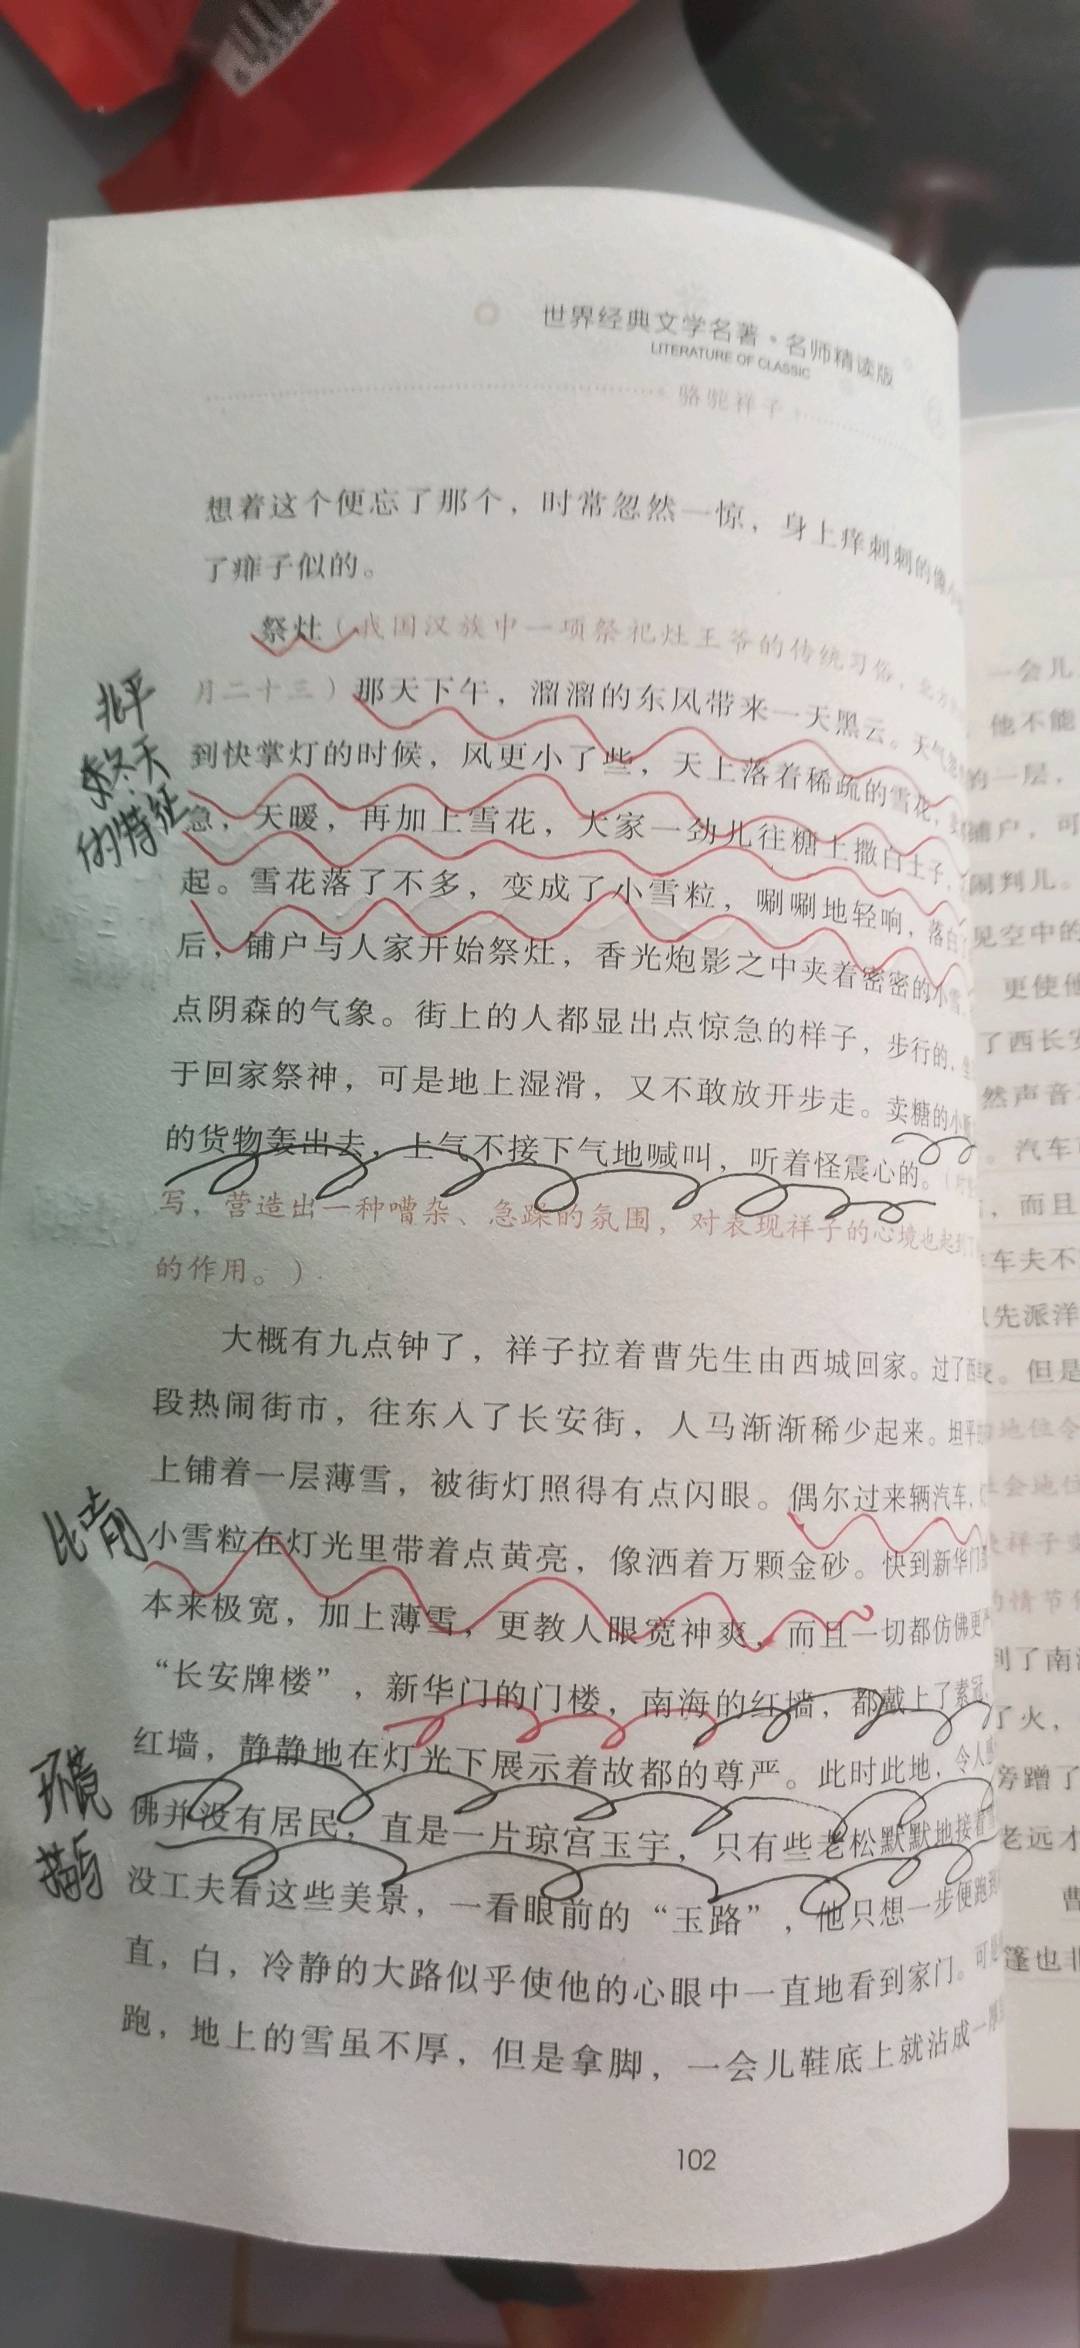 世界经典文学名著·名师精读版
LITERATURE OF CLASSIC
骆驼祥子
想着这个便忘了那个，时常忽然一惊，身上痒刺刺的像
了痱子似的。
祭灶（我国汉族中一项祭祀灶王爷的传统习俗，北方
月二十三）那天下午，溜溜的东风带来一天黑云。天气
到快掌灯的时候，风更小了些，天上落着稀疏的雪花，
急，天暖，再加上雪花，大家一劲儿往糖上撒白土子，
起。雪花落了不多，变成了小雪粒，唰唰地轻响，落白
后，铺户与人家开始祭灶，香光炮影之中夹着密密的小雪，
点阴森的气象。街上的人都显出点惊急的样子，步行的，坐
于回家祭神，可是地上湿滑，又不敢放开步走。卖糖的小贩
的货物轰出去，上气不接下气地喊叫，听着怪震心的。（
写，营造出一种嘈杂、急躁的氛围，对表现祥子的心境也起到了
的作用。）
大概有九点钟了，祥子拉着曹先生由西城回家。过了西
段热闹街市，往东入了长安街，人马渐渐稀少起来。坦平
上铺着一层薄雪，被街灯照得有点闪眼。偶尔过来辆汽车，
小雪粒在灯光里带着点黄亮，像洒着万颗金砂。快到新华门
本来极宽，加上薄雪，更教人眼宽神爽，而且一切都仿佛更
“长安牌楼”，新华门的门楼，南海的红墙，都戴上了素冠，
红墙，静静地在灯光下展示着故都的尊严。此时此地，令人
佛并没有居民，直是一片琼宫玉宇，只有些老松默默地接着
没工夫看这些美景，一看眼前的“玉路”，他只想一步便跑到
直，白，冷静的大路似乎使他的心眼中一直地看到家门。可
跑，地上的雪虽不厚，但是拿脚，一会儿鞋底上就沾成一厚
102
北平
冬天
的特征
比喻
环境
描写
一会儿
他不能
的一层，
铺户，可
闹判儿。
见空中的
更使他
了西长安
然声音
。汽车
，而且
车夫不
先派洋
。但是
地位令
社会地位
祥子
的情节
到了南海
了火，
旁蹭了
老远才
曹
篷也非